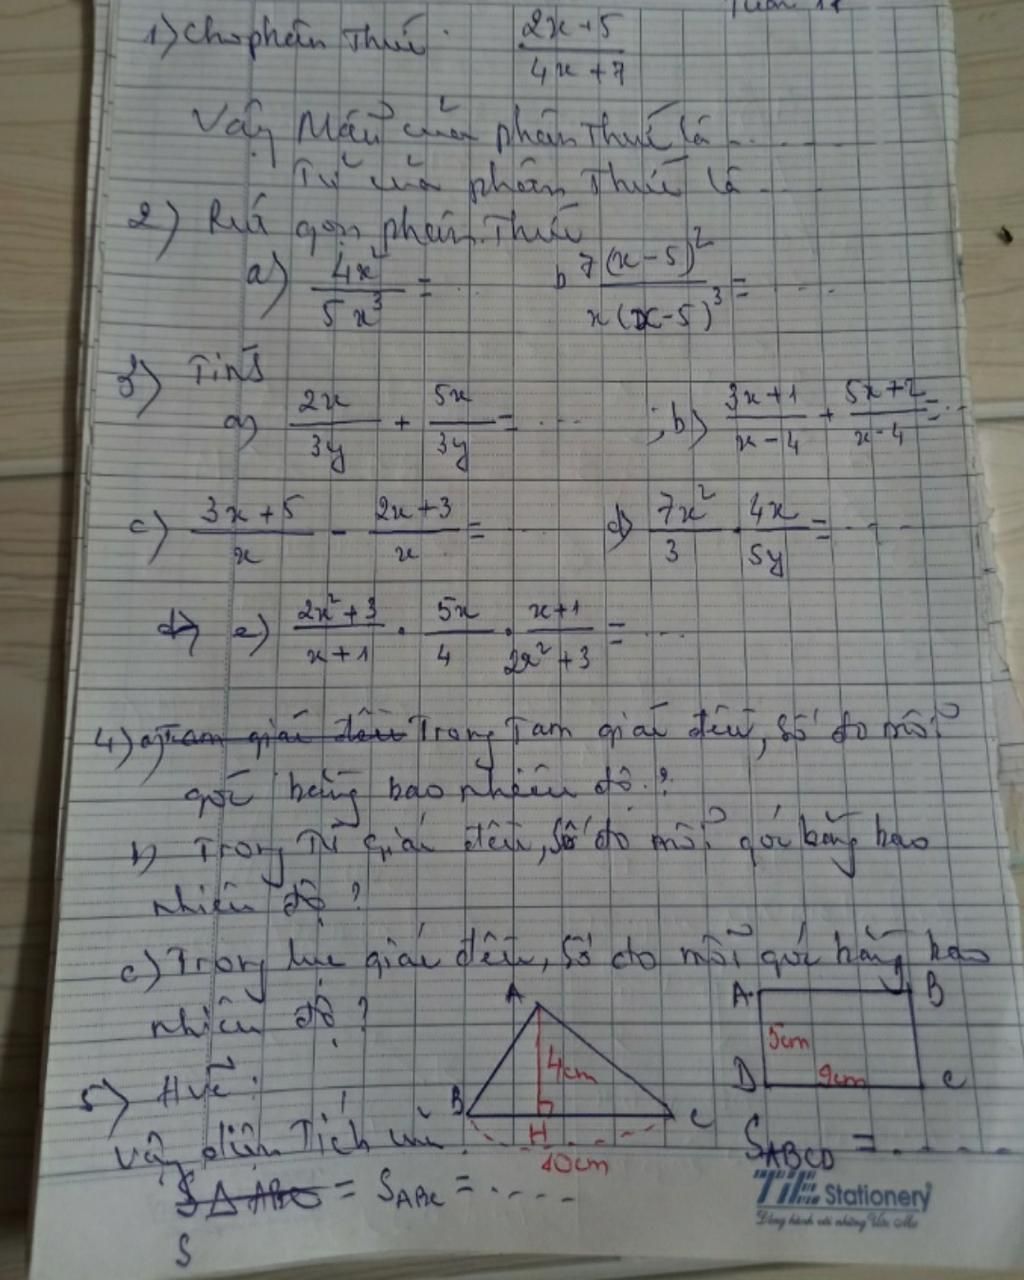 Tuần 18
1) Cho phân thức: (2x+5)/(4x+7)
Vậy Mẫu của phân thức là ....
Tử của phân thức là ....
2) Rút gọn phân thức
a) 4x²/5x³ = ... b 7(x-5)²/x(x-5)³ = ....
3) Tính
a) 2x/3y + 5x/3y = ... ; b) (3x+1)/(x-4) + (5x+2)/(x-4) = ...
c) (3x+5)/x - (2x+3)/x = ... d) 7x²/3 . 4x/5y = ....
e) (2x²+3)/(x+1) . 5x/4 . (x+1)/(2x²+3) = ....
4) a) Trong Tam giác đều, số đo mỗi
góc bằng bao nhiêu độ.?
b) Trong Tứ giác đều, số đo mỗi góc bằng bao
nhiêu độ?
c) Trong lục giác đều, số đo mỗi góc bằng bao
nhiêu độ?
A
B
C
H
4cm
10cm
A B
D C
5cm
9cm
5) H.vẽ:
Vậy diện Tích
S△ABC = SABC = .....
S
SABCD = .....
TIE Stationery
Đồng hành với những Ước Mơ